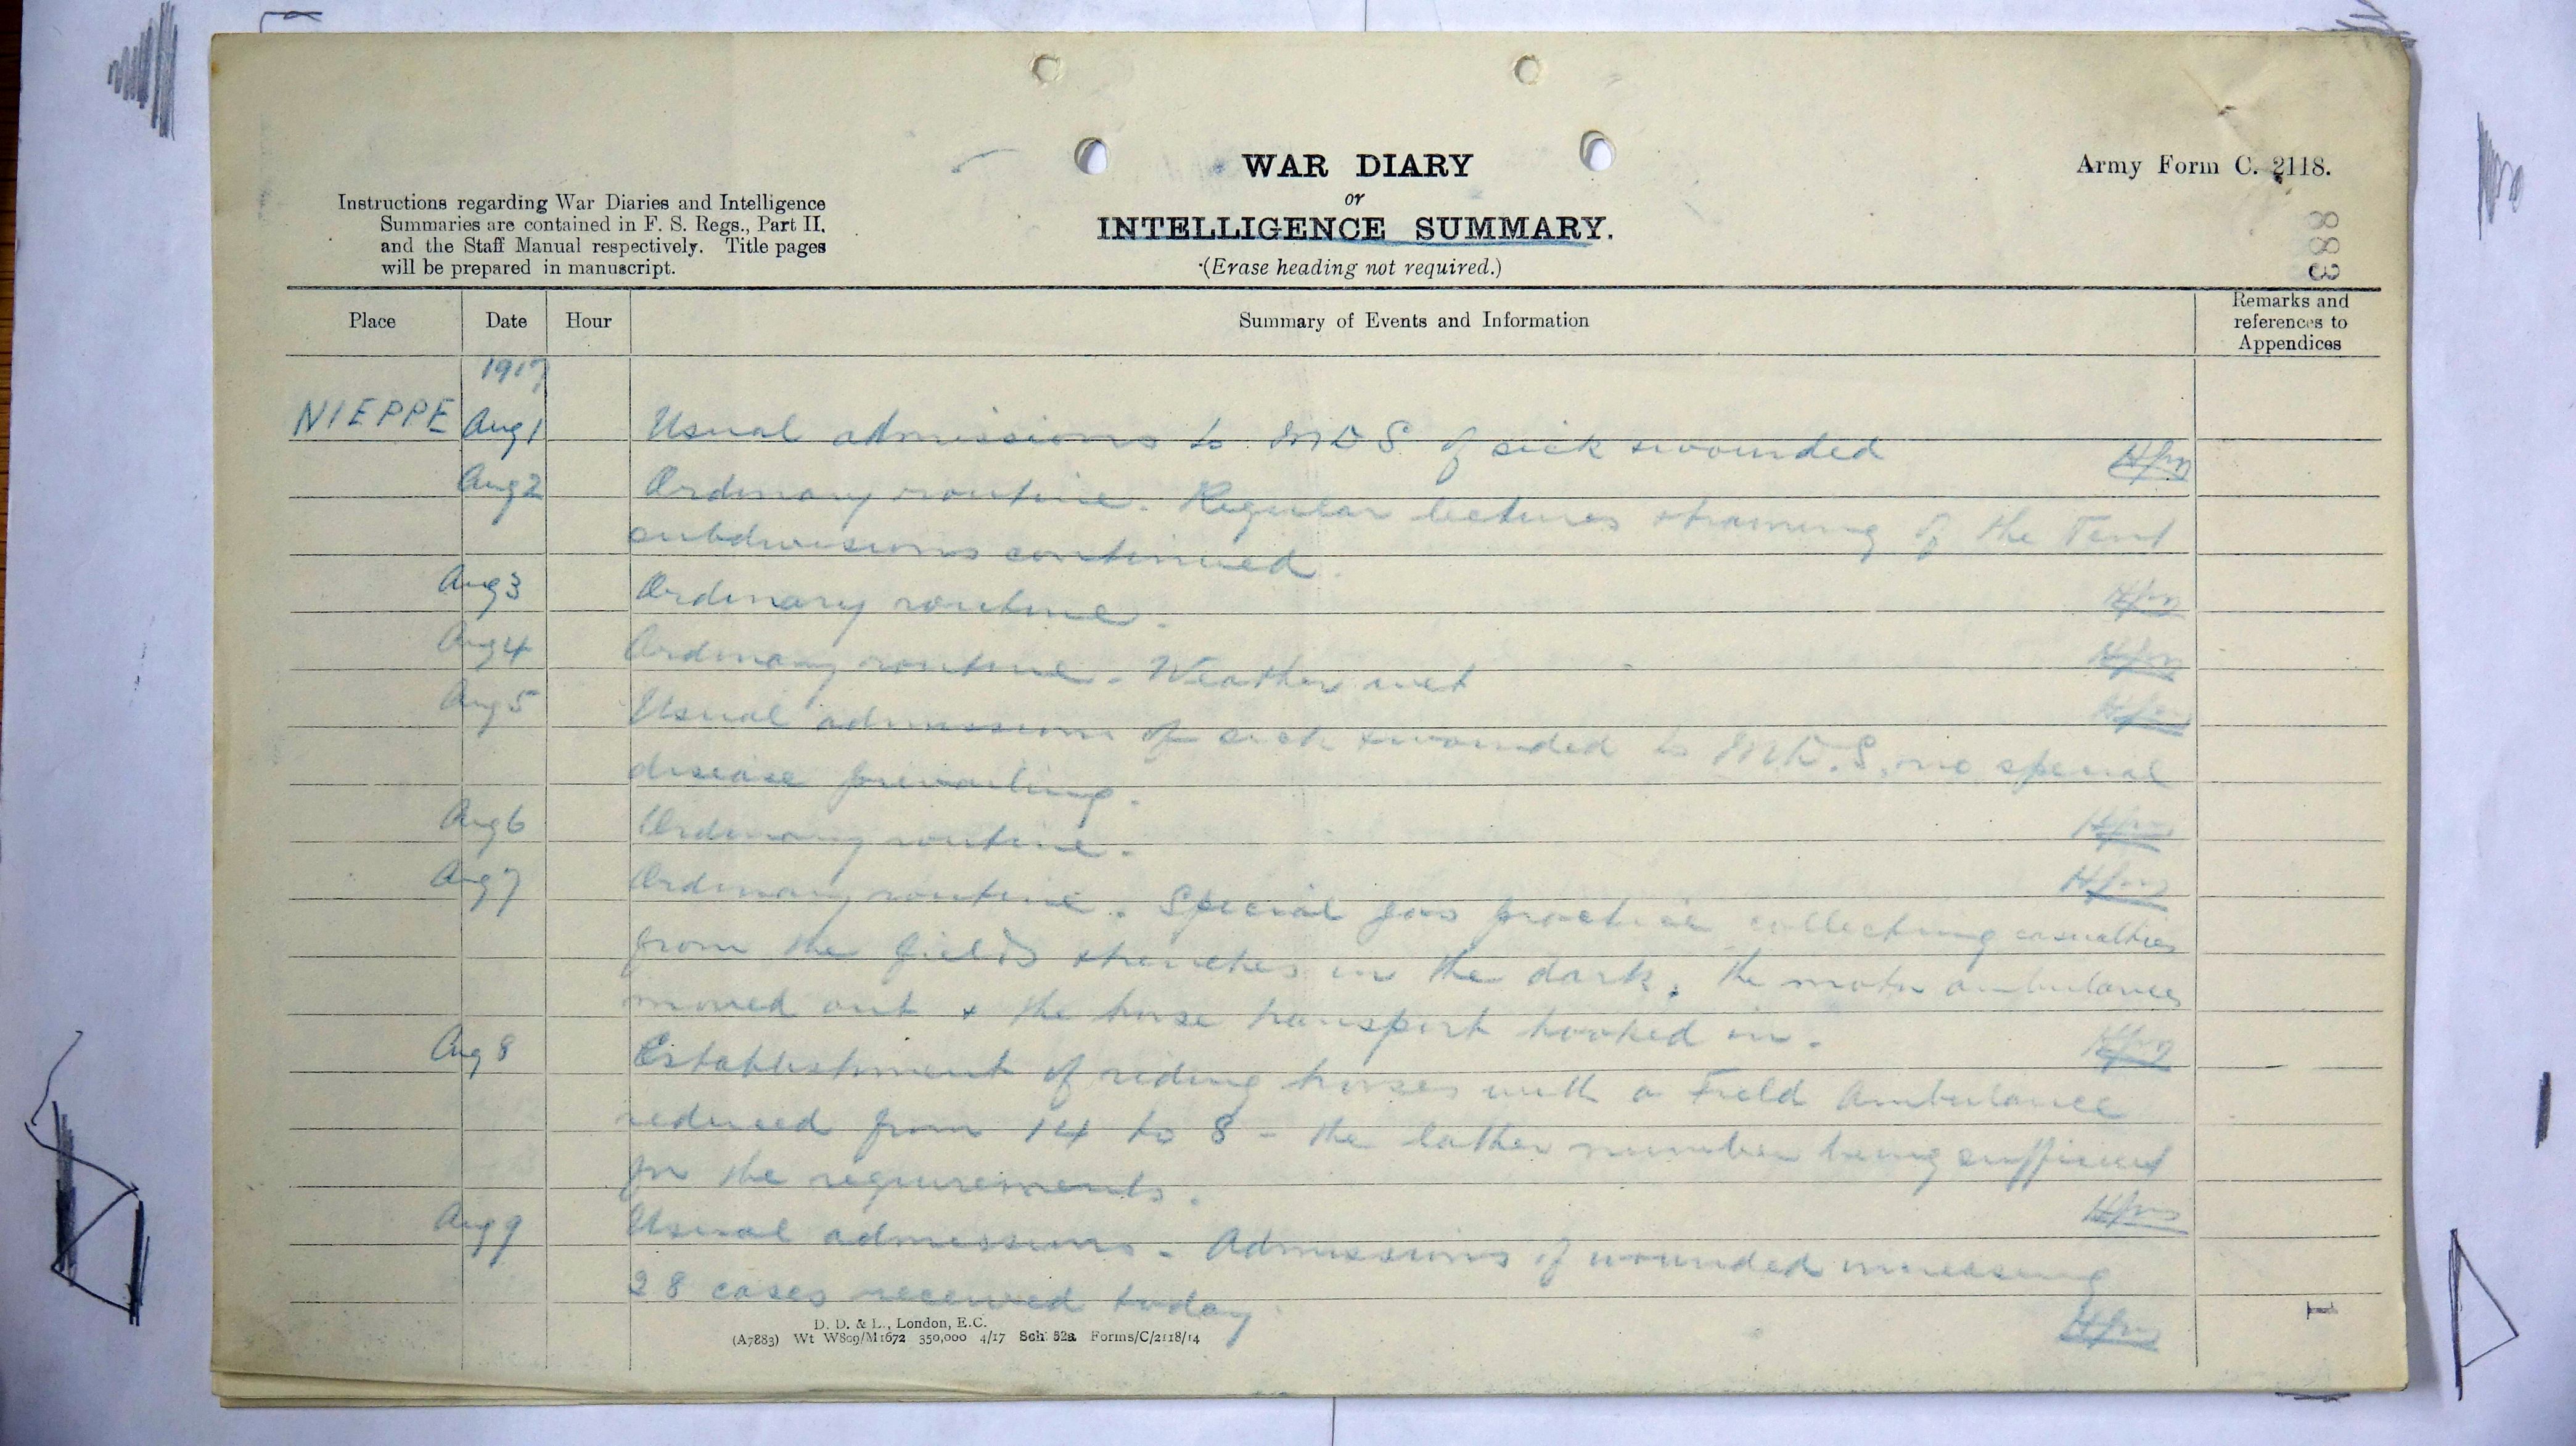 WAR DIARY
or
INTELLIGENCE SUMMARY.
(Erase heading not required.)
Army Form C. 2118.
Instructions regarding War Diaries and Intelligence
Summaries are contained in F. S. Regs., Part II.
and the Staff Manual respectively. Title pages
will be prepared in manuscript.
883
Place Date Hour Summary of Events and Information Remarks and
references to
Appendices
1917
NIEPPE Aug 1 Usual admissions to MDS of sick & wounded
Aug 2 Ordinary routine. Regular lectures & training of the Tent
subdivisions continued.
Aug 3 Ordinary routine.
Aug 4 Ordinary routine. Weather wet
Aug 5 Usual admissions of sick & wounded to M.D.S, no special
disease prevailing.
Aug 6 Ordinary routine.
Aug 7 Ordinary routine. Special gas practice collecting casualties
from the fields & trenches in the dark. The motor ambulances
moved out & the horse transport hooked in.
Aug 8 Establishment of riding horses with a Field Ambulance
reduced from 14 to 8 - the latter number being sufficient
for the requirements.
Aug 9 Usual admissions. Admissions of wounded increasing
28 cases received today.
D. D. & L., London, E.C.
(A7883) Wt W809/M1672 350,000 4/17 Sch. 52a Forms/C/2118/14
1